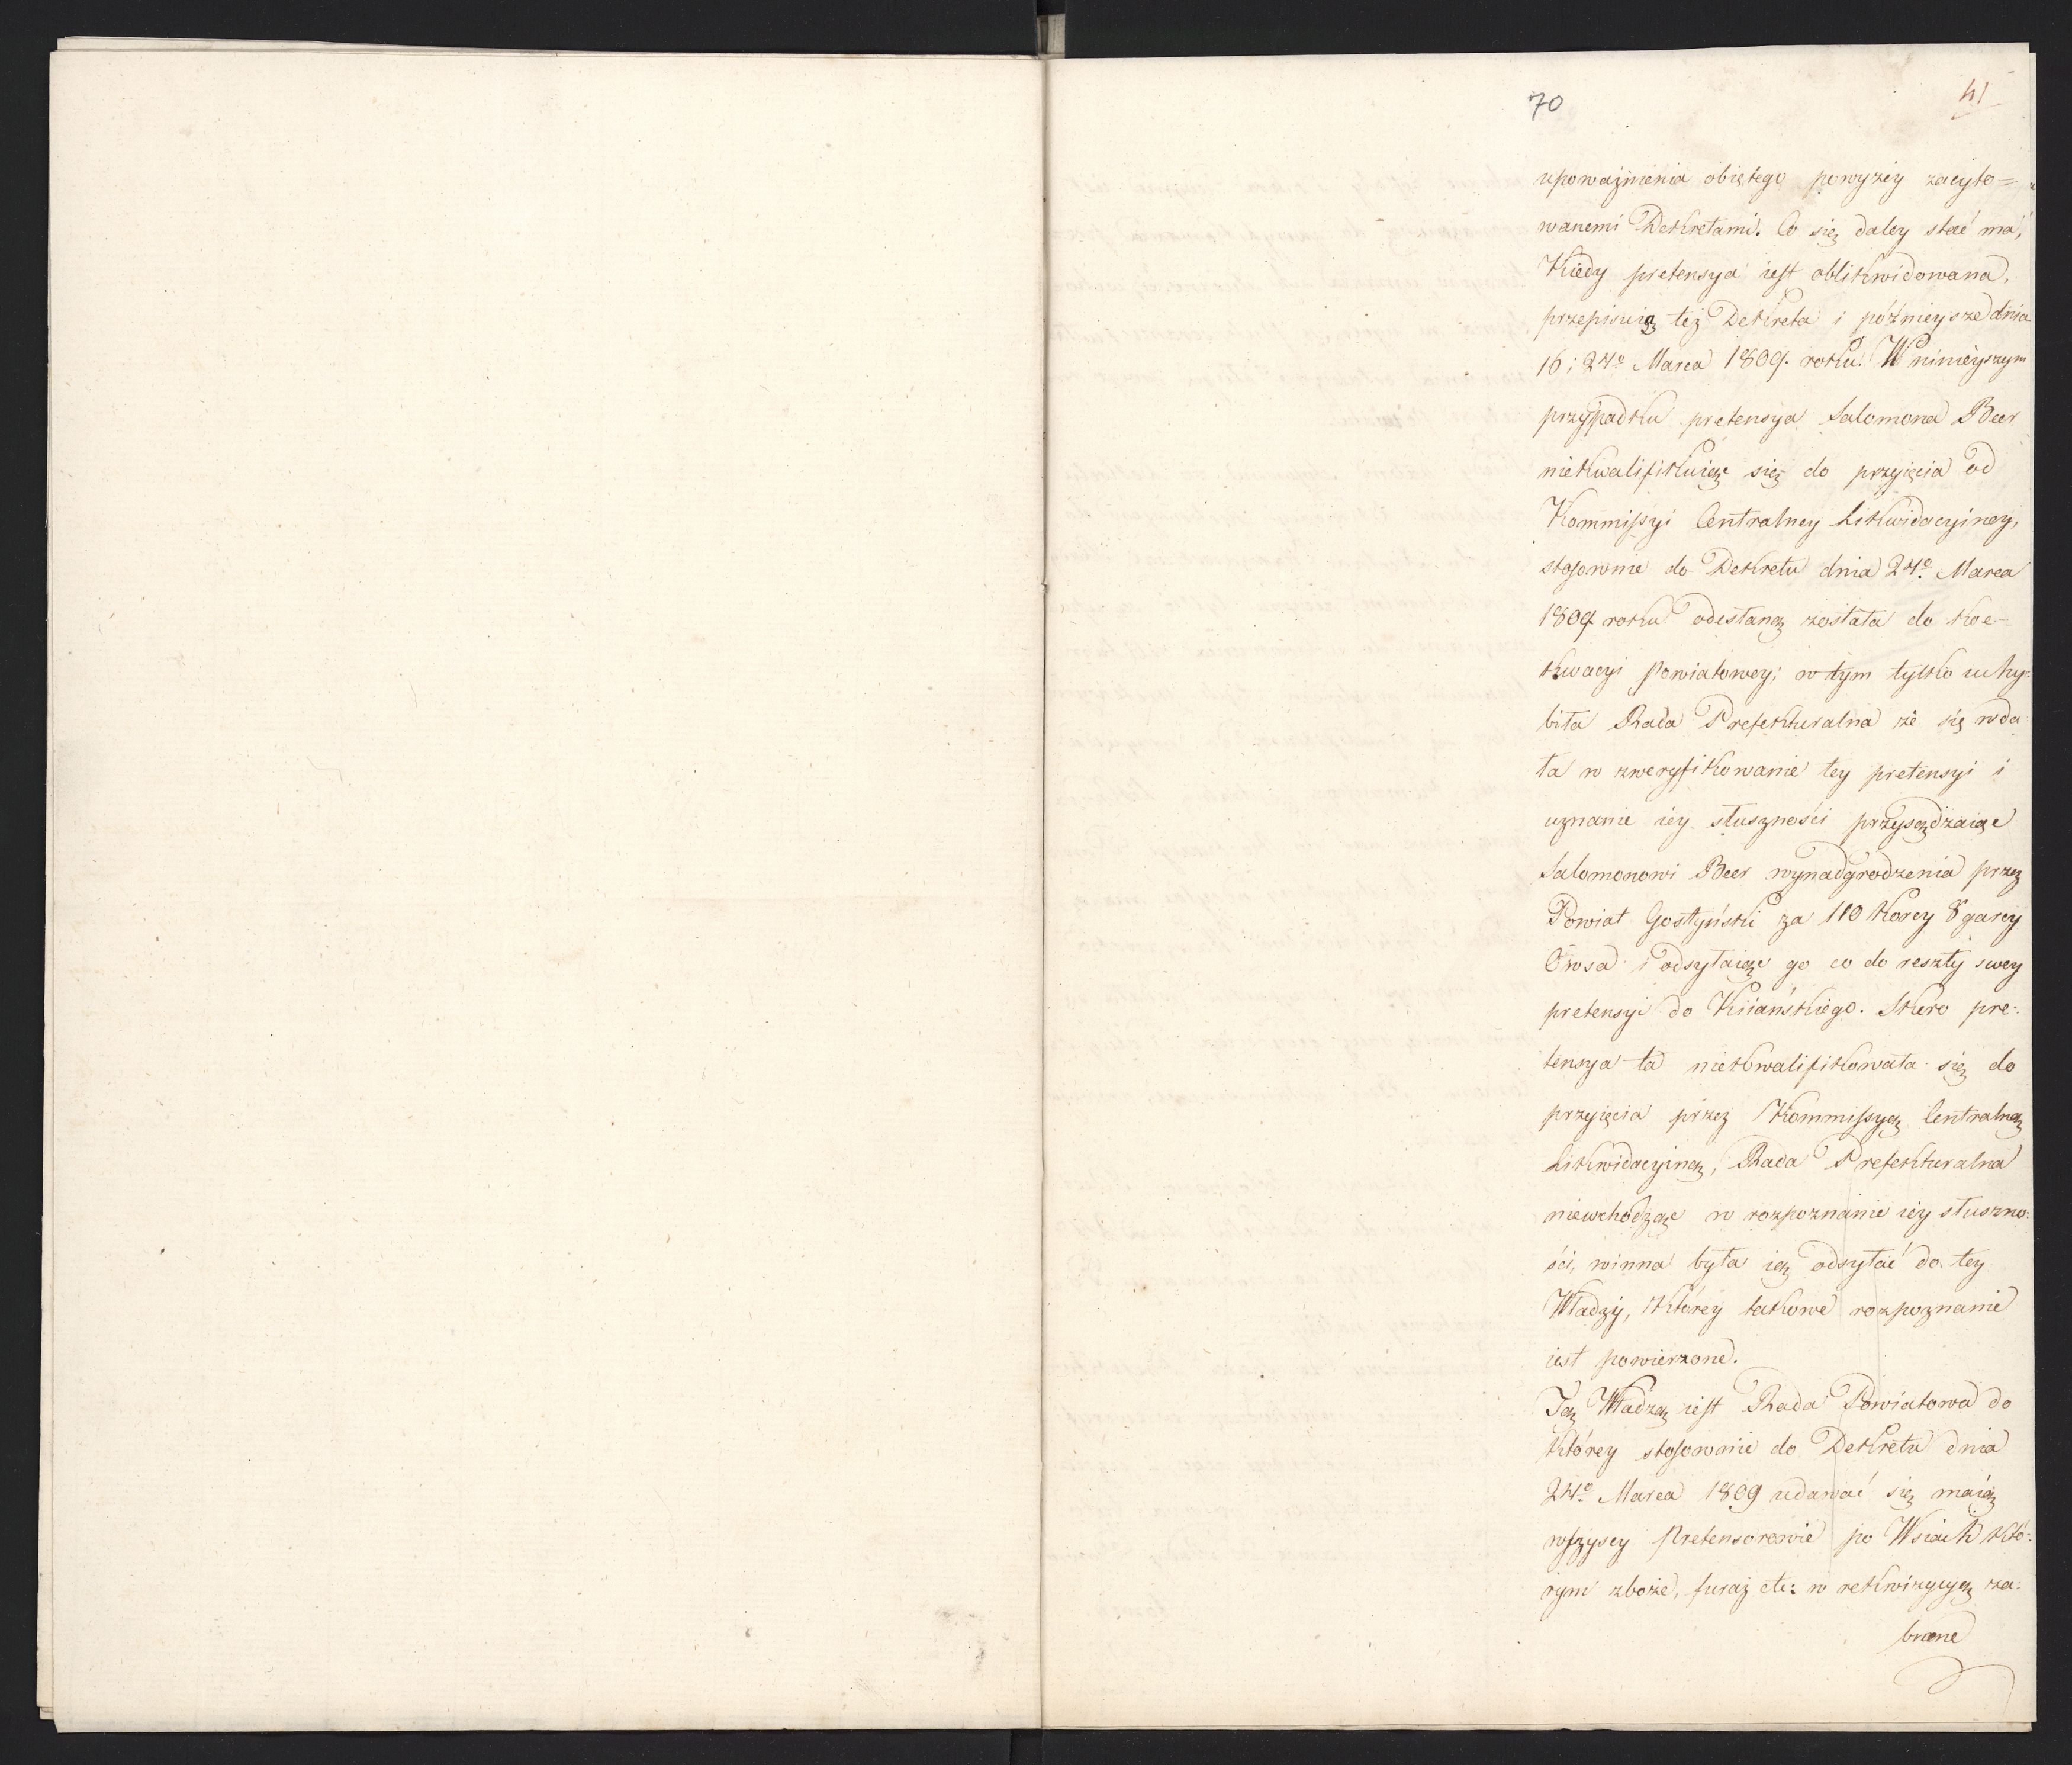 70
41
upoważnienia obiętego powyżey zacyto=
wanemi Dekretami. Co się daley stać ma,
Kiedy pretensya iest oblikwidowana,
przepisuią też Dekreta i późnieysze dnia
16 i 24º Marca 1809. roku. W ninieyszym
przypadku pretensya Salomona Beer
niekwalifikuiąc się do przyięcia od
Kommissyi Centralney Likwidacyiney,
stosownie do Dekretu dnia 24º Marca
1809 roku odesłaną została do koe-
kwacyi Powiatowey; w tym tylko uchy:
biła Rada Prefekturalna że się wda
ła w zweryfikowanie tey pretensyi i
uznanie iey słuszności przysądzaiąc
Salomonowi Beer wynadgrodzenia przez
Powiat Gostyński za 110 Korcy 8 garcy
Owsa i odsyłaiąc go co do reszty swey
pretensyi do Kiiańskiego. Skoro pre:
tensya ta niekwalifikowała się do
przyięcia przez Kommissyą Centralną
Likwidacyiną, Rada Prefekturalna
niewchodząc w rozpoznanie iey słuszno:
ści, winna była ią odsyłać do tey
Władzy, Którey takowe rozpoznanie
iest powierzone.
Tą Władzą iest Rada Powiatowa do
Którey stosownie do Dekretu dnia
24º Marca 1809 udawać się maią
wszyscy Pretensorowie po Wsiach któ:
rym zboże, furaż etc: w rekwizycyą za:
brane